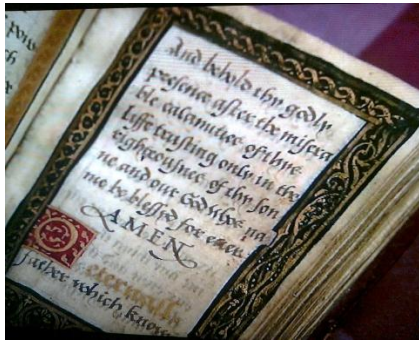 pow
ich
And behold thy godly
presence after the misera
ble calamities of this
liffe trusting only in the
righteousnes of thy son
ne and our
me be blessed for euer.
AMEN
O eternall
father which know